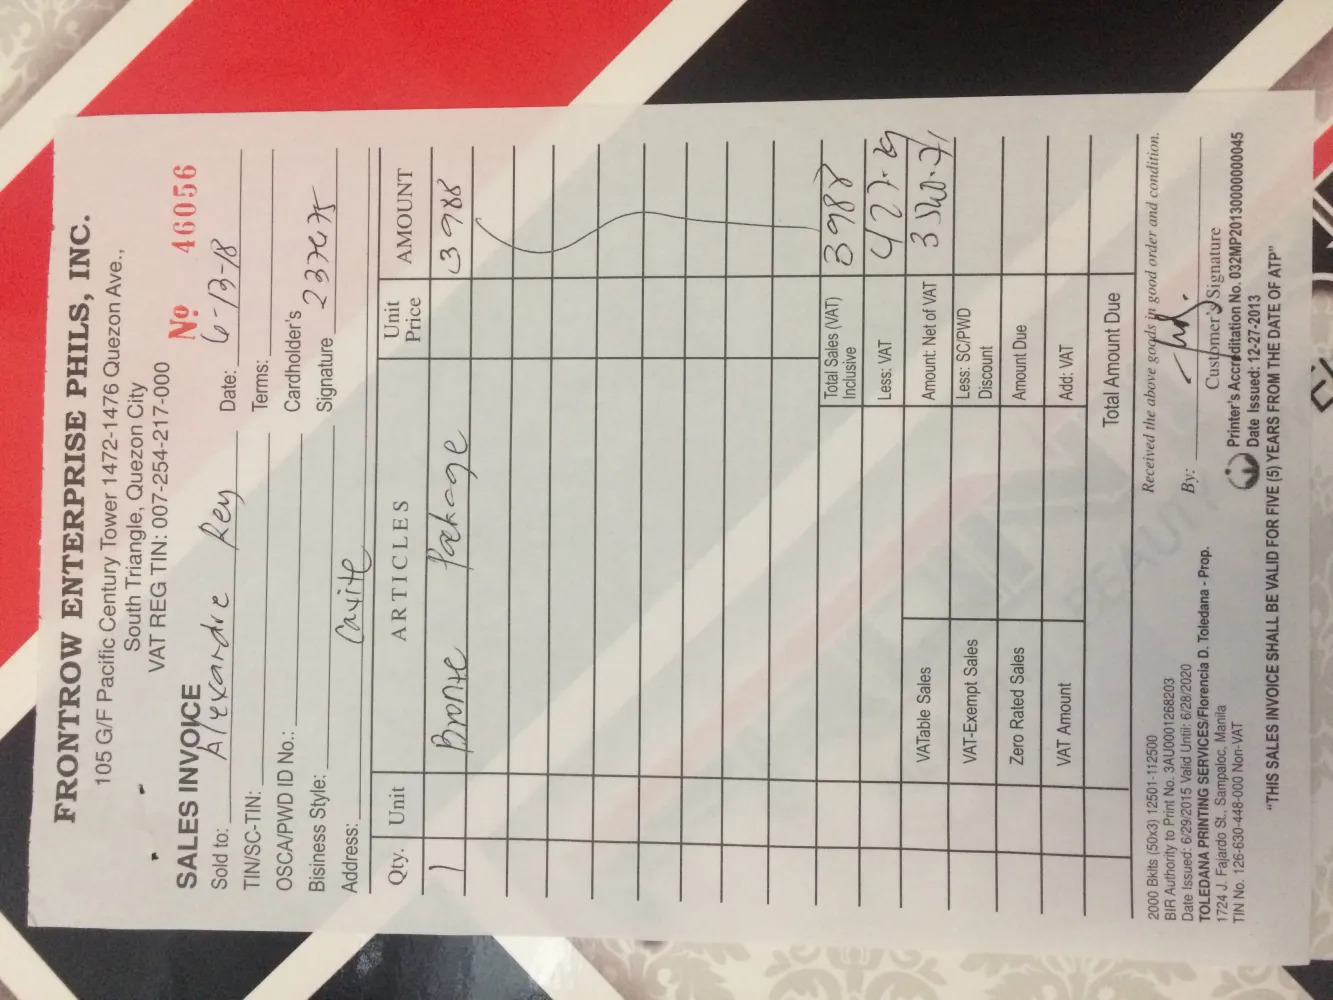 FRONTROW ENTERPRISE PHILS, INC.
105 G/F Pacific Century Tower 1472-1476 Quezon Ave.,
South Triangle, Quezon City
VAT REG TIN: 007-254-217-000
SALES INVOICE
Nº 46056
Sold to: Alexandre Rey
Date: 6-13-18
TIN/SC-TIN:
Terms:
OSCA/PWD ID No.:
Cardholder's
Bisiness Style:
Signature
Address: Cavite
Qty. Unit ARTICLES Unit Price AMOUNT
1 Bronze Package 3988
Total Sales (VAT) Inclusive 3988
Less: VAT 427.29
VATable Sales
Amount: Net of VAT 3560.71
VAT-Exempt Sales
Less: SC/PWD Discount
Zero Rated Sales
Amount Due
VAT Amount
Add: VAT
Total Amount Due
2000 Bklts (50x3) 12501-112500
BIR Authority to Print No. 3AU0001268203
Date Issued: 6/29/2015 Valid Until: 6/28/2020
TOLEDANA PRINTING SERVICES/Florencia D. Toledana - Prop.
1724 J. Fajardo St., Sampaloc, Manila
TIN No. 126-630-448-000 Non-VAT
Received the above goods in good order and condition.
By:
Customer's Signature
Printer's Accreditation No. 032MP20130000000045
Date Issued: 12-27-2013
"THIS SALES INVOICE SHALL BE VALID FOR FIVE (5) YEARS FROM THE DATE OF ATP"